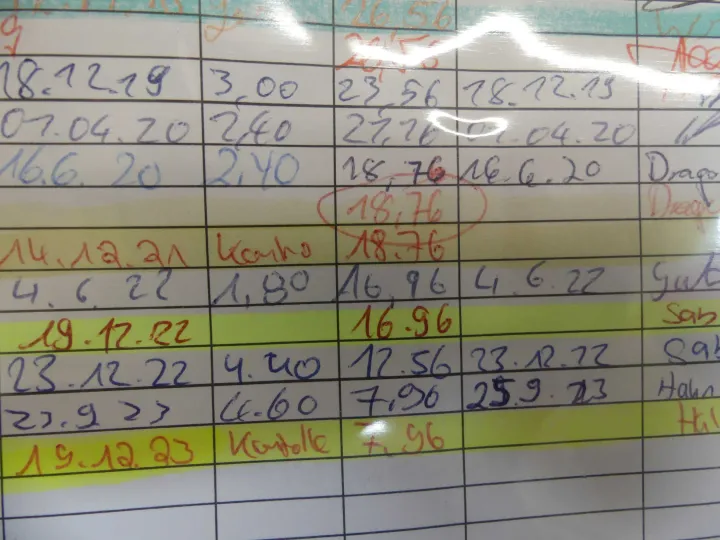 26,56
26,56
18.12.19 3,00 23,56 18.12.19
01.04.20 2,40 21,16 01.04.20
16.6.20 2,40 18,76 16.6.20 Drago
18,76 Drago
14.12.21 18.76
4.6.22 1,80 16,96 4.6.22
19.12.22 16.96 Sab
23.12.22 4.40 12.56 23.12.22 Sab
23.9 23 4.60 7,96 9.23 Hahn
19.12.23 Kontolle 7,96